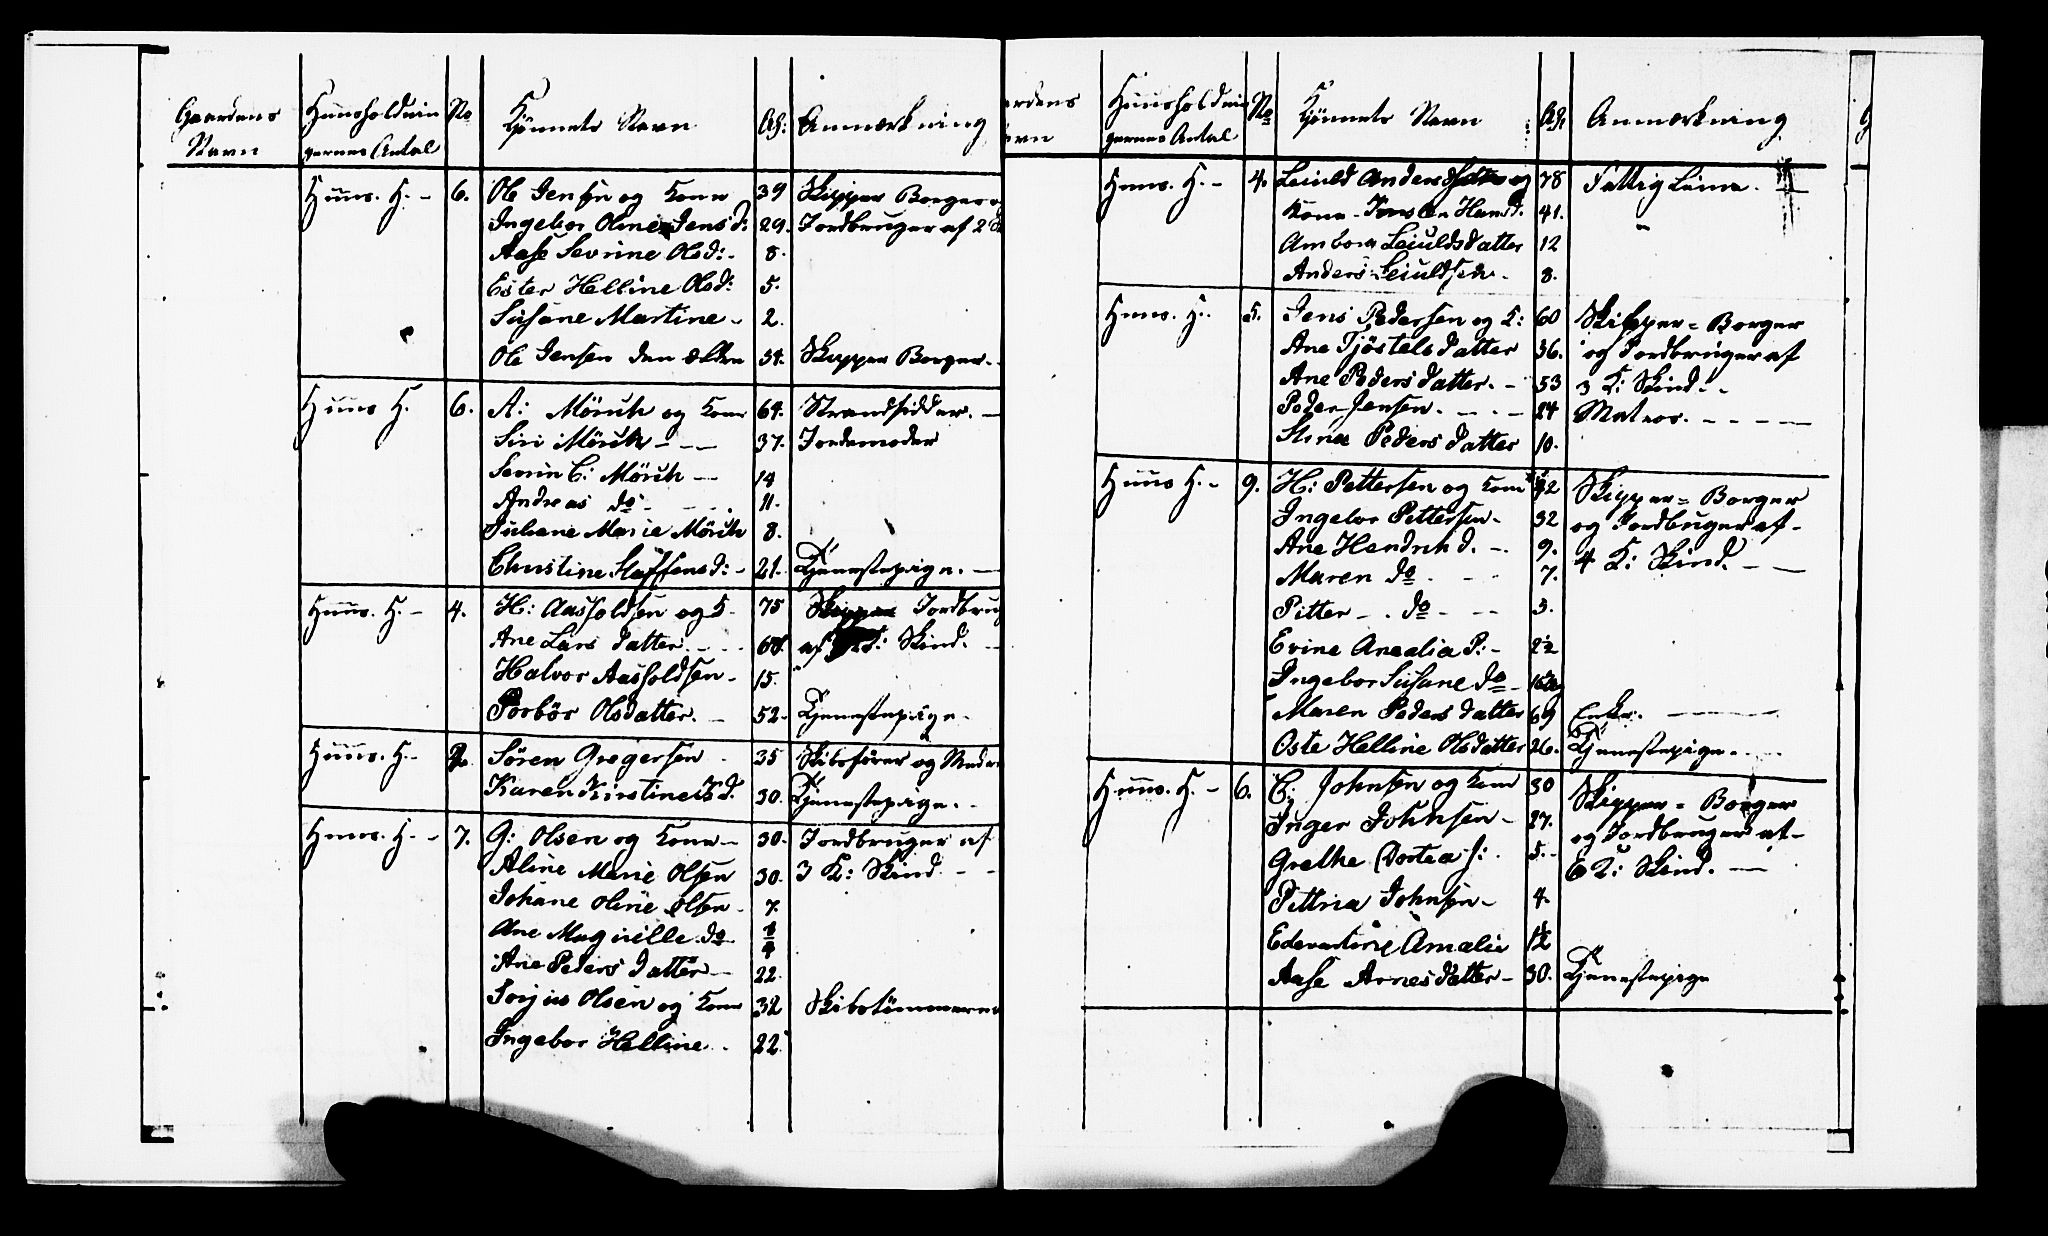 Gaardens Huusholdnin No Kjönnets Navn Al: Anmærkning
Navn gernes Antal
Huus. H. - 6. Ole Jensen og Kone 39 Skipper Borger og
Ingebor Oline Jens d: 29. Jordbruger af 2
Aase Sevrine Olsd: - 8.
Ester Helline Olsd: 5.
Susane Martine - 2.
Ole Jensen den ældre 34. Skipper Borger. -
Huus H. 6. A: Mörch og Kone 64. Strandsidder. -
Siri Mörch - - - 37. Jordemoder
Sevrin C: Mörch - - 14
Andreas do - - - 11.
Juliane Marie Mörch 8.
Christine Staffens d: - 21. Tjenestepige. -
Huus. H. - 4. H: Aasholdsen og K. 75 Jordbrug
Ane Lars datter. - - 68. af K: Skind. -
Halvor Aasholdsen - 15.
Torbör Olsdatter. - 52. Tjenestepige -
Huus. H. - 2. Sören Gregersen - 35 Skibsförer og
Karen Kirstine d. 30. Tjenestepige. -
Huus. H. - 7. G: Olsen og Kone - 30. Jordbruger af
Aline Marie Olsen 30. 3 K: Skind. - -
Johane Oline Olsen - 7.
Ane Magnille do 1/4
Ane Peders datter - 22.
Torjus Olsen og Kone 32 Skibstömmerm
Ingebor Helline - 22
ardens Huusholdnin No Kjönnets Navn Al, Anmærkning
avn gernes Antal
Huus. H. - 4. Leiuld Andersen og 78 Fattig Lem.
Kone - Hans d. 41.
Ambor Leiuldsdatter 12
Anders Leiuldsen - 8.
Huus. H. 5. Jens Pedersen og K: 60 Skipper = Borger
Ane Tjöstels datter 36. og Jordbruger af
Ane Peders datter. - 53 3 K: Skind. -
Peder Jensen. - - - 24 Matros. - - - -
Stine Peders datter 10.
Huus H. - 9. H: Pettersen og Kone 42 Skipper = Borger
Ingebor Pettersen - 32 og Jordbruger af -
Ane Hendrik d. - 9. 4 K: Skind. - -
Maren do - - 7.
Pitter - . do - - - 5.
Evine Amalia P: - 2 1/2
Ingebor Susane do -
Maren Peders datter 69 Enke. -
Oste Helline Olsdatter 26. Tjenestepige. - -
Huus. H. - 6. C; Johnsen og Kone 30 Skipper = Borger
Inger Johnsen - 27. og Jordbruger af -
Grethe Dortea J: 5. - 6 K: Skind. -
Pittria Johnsen - 4.
Edevartine Amalie 1 1/2
Aase Arnes datter - 30. Tjenestepige